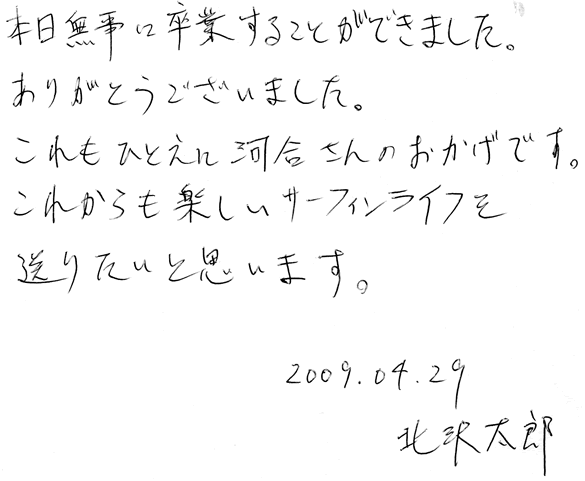 本日無事に卒業することができました。
ありがとうございました。
これもひとえに河合さんのおかげです。
これからも楽しいサーフィンライフを
送りたいと思います。
2009.04.29
北沢太郎